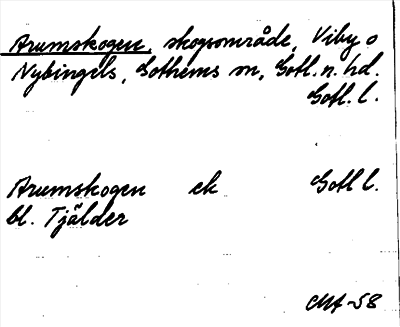 Arumskogen, skogsområde, Viby o
Nybingels, Gothems sn, Gotl. n. hd.
Gotl. l.
Arumskogen ek Gotl l.
bl. Tjälder
CMA -58